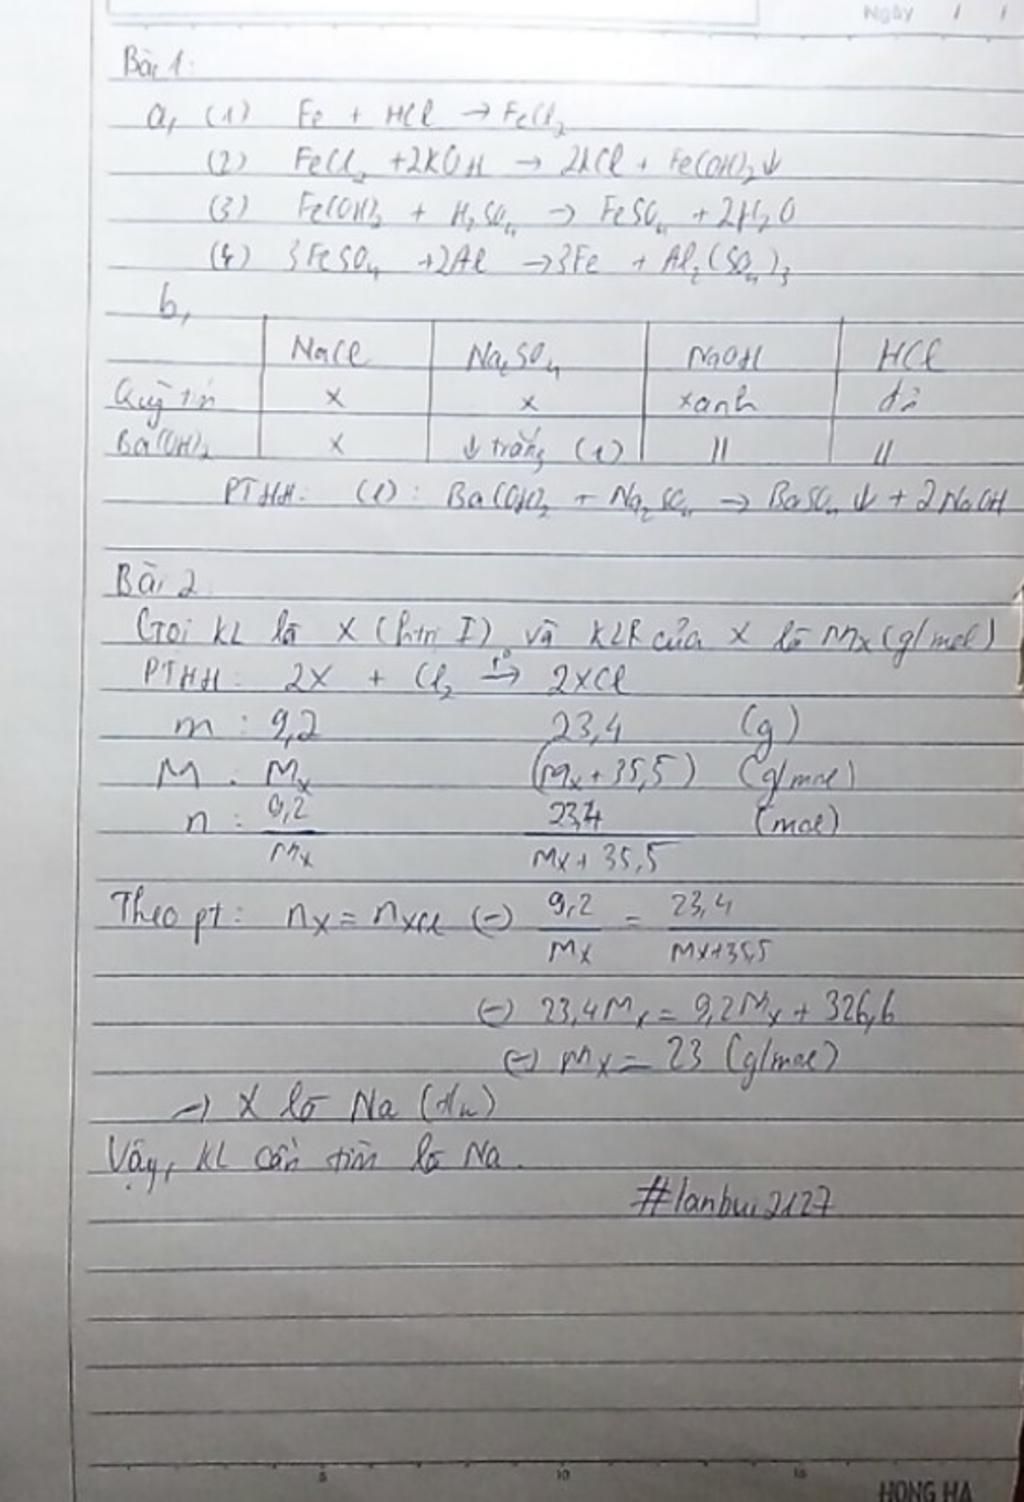 Ngày / /
Bài 1:
a, (1) Fe + HCl → FeCl₂
(2) FeCl₂ + 2KOH → 2KCl + Fe(OH)₂↓
(3) Fe(OH)₂ + H₂SO₄ → FeSO₄ + 2H₂O
(4) 3FeSO₄ + 2Al → 3Fe + Al₂(SO₄)₃
b,
NaCl Na₂SO₄ NaOH HCl
Quỳ tím x x xanh đỏ
Ba(OH)₂ x ↓ trắng (1) || ||
PTHH: (1): Ba(OH)₂ + Na₂SO₄ → BaSO₄↓ + 2NaOH
Bài 2
Gọi KL là X (htrị I) và KLR của X là Mx (g/mol)
PTHH: 2X + Cl₂ →(t°) 2XCl
m : 9,2 23,4 (g)
M : Mx (Mx + 35,5) (g/mol)
n : 9,2/Mx 23,4/(Mx + 35,5) (mol)
Theo pt: nx = nxcl (=) 9,2/Mx = 23,4/(Mx+35,5)
(=) 23,4Mx = 9,2Mx + 326,6
(=) Mx = 23 (g/mol)
=) X là Na
Vậy, KL cần tìm là Na.
#lanbui2127
5 10 15
HONG HA